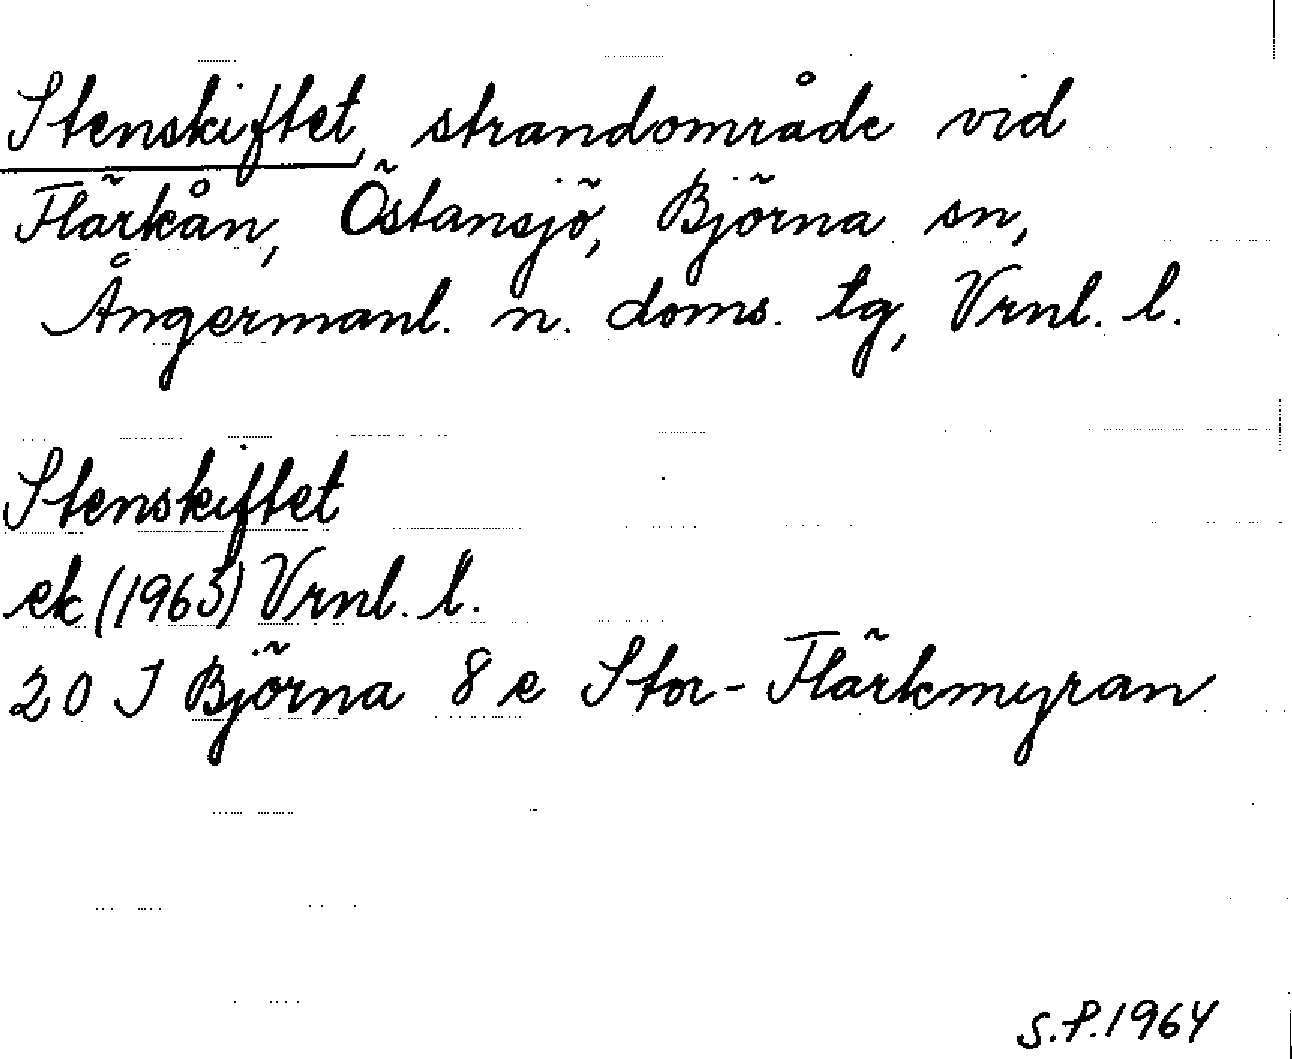 Stenskiftet, strandområde vid
Flärkån, Östansjö, Björna sn,
Ångermanl. n. doms. tg, Vrnl. l.
Stenskiftet
ek (1963) Vrnl. l.
20 J Björna 8 e Stor-Flärkmyran
S.P. 1964